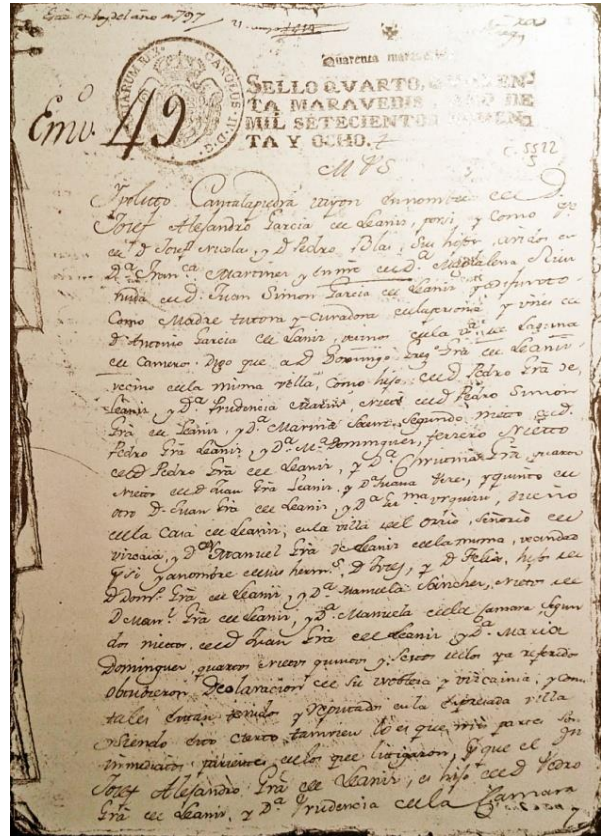 Grã en ley del año de 797
Quarenta marave
CAROLUS IV D G
SELLO QVARTO, QVAREN-
TA MARAVEDIS, AÑO DE
MIL SETECIENTOS NOVEN-
TA Y OCHO.
Emº. 49
C. 5522
5
M P S
Ypolitto Cantalapiedra en nombre de D.
Josef Alejandro Garcia de Leaniz, por si, y como
de D. Josef Nicolas, y D. Pedro Blas, Sus hijos, avidos en
D.ª Fran.ca Martinez y en nre de D.ª Magdalena
viuda de D. Juan Simon Garcia de Leaniz
Como Madre tutora y curadora de la persona y vienes de
D. Antonio Garcia de Leaniz, vecinos de la v.ª de Laguna
de Cameros: Digo que a D. Domingo Grã de Leaniz
vecino de la misma villa, como hijo de D. Pedro Grã de
Leaniz, y D.ª Prudencia Nieto de D. Pedro Simon
Grã de Leaniz, y D.ª Marina Segundo nieto de D.
Pedro Grã Leaniz, y D.ª M.ª Dominguez, tercero Nietto
de D. Pedro Grã de Leaniz, y D.ª quarto
nieto de D. Juan Grã Leaniz, y D.ª Juana y quinto de
otro D. Juan Grã de Leaniz, y D.ª dueño
de la Casa de Leaniz, en la villa del Orrio, Señorio de
vizcaia, y D.n Manuel Grã de Leaniz de la misma, vecindad
por si y a nombre de sus herm.s D. y D. Felix, hijos de
D. Dom.º Grã de Leaniz, y D.ª Manuela Sanchez, nietos de
D. Man.l Grã de Leaniz, y D.ª Manuela de la Camara Segun
dos nietos de D. Juan Grã de Leaniz y D.ª Maria
Dominguez, quartos nietos quintos y Sextos de los ya referidos
obtubieron Declaracion de su nobleza y vizcainia; y como
tales estan tenidos y reputados en la expresada villa
y siendo esto cierto tambien lo es que mis partes son
inmediatos parientes de los que litigaron, y que el D.n
Josef Alejandro Grã de Leaniz, es hijo de D. Pedro
Grã de Leaniz, y D.ª Prudencia de la Camara